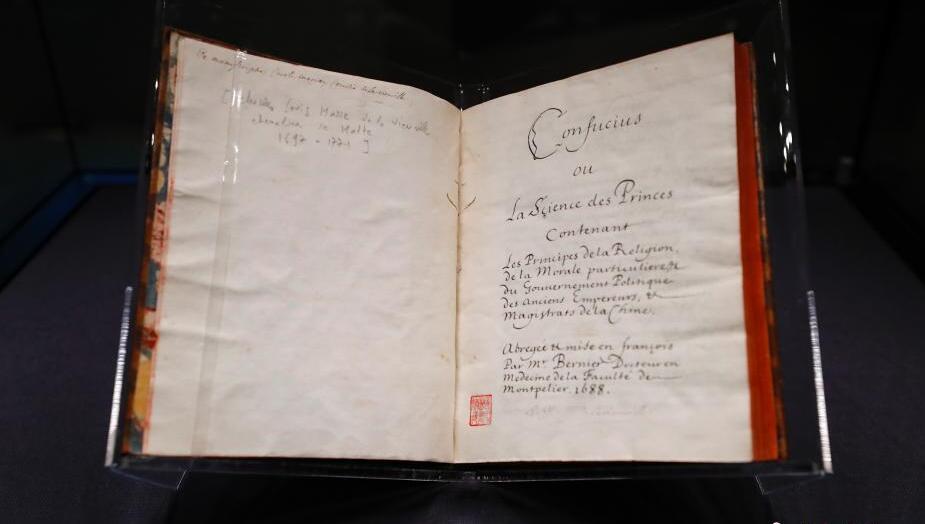 de la Vieuville
chevalier de Malte
1697 - 1771 ]
Confucius
ou
La Sçience des Princes
Contenant
Les Principes de la Religion,
de la Morale particuliere, &
du Gouvernement Politique
des anciens Empereurs, &
Magistrats de la Chine.
Abregée & mise en françois
Par Mr. Bernier Docteur en
Medecine de la Faculté de
Montpelier. 1688.